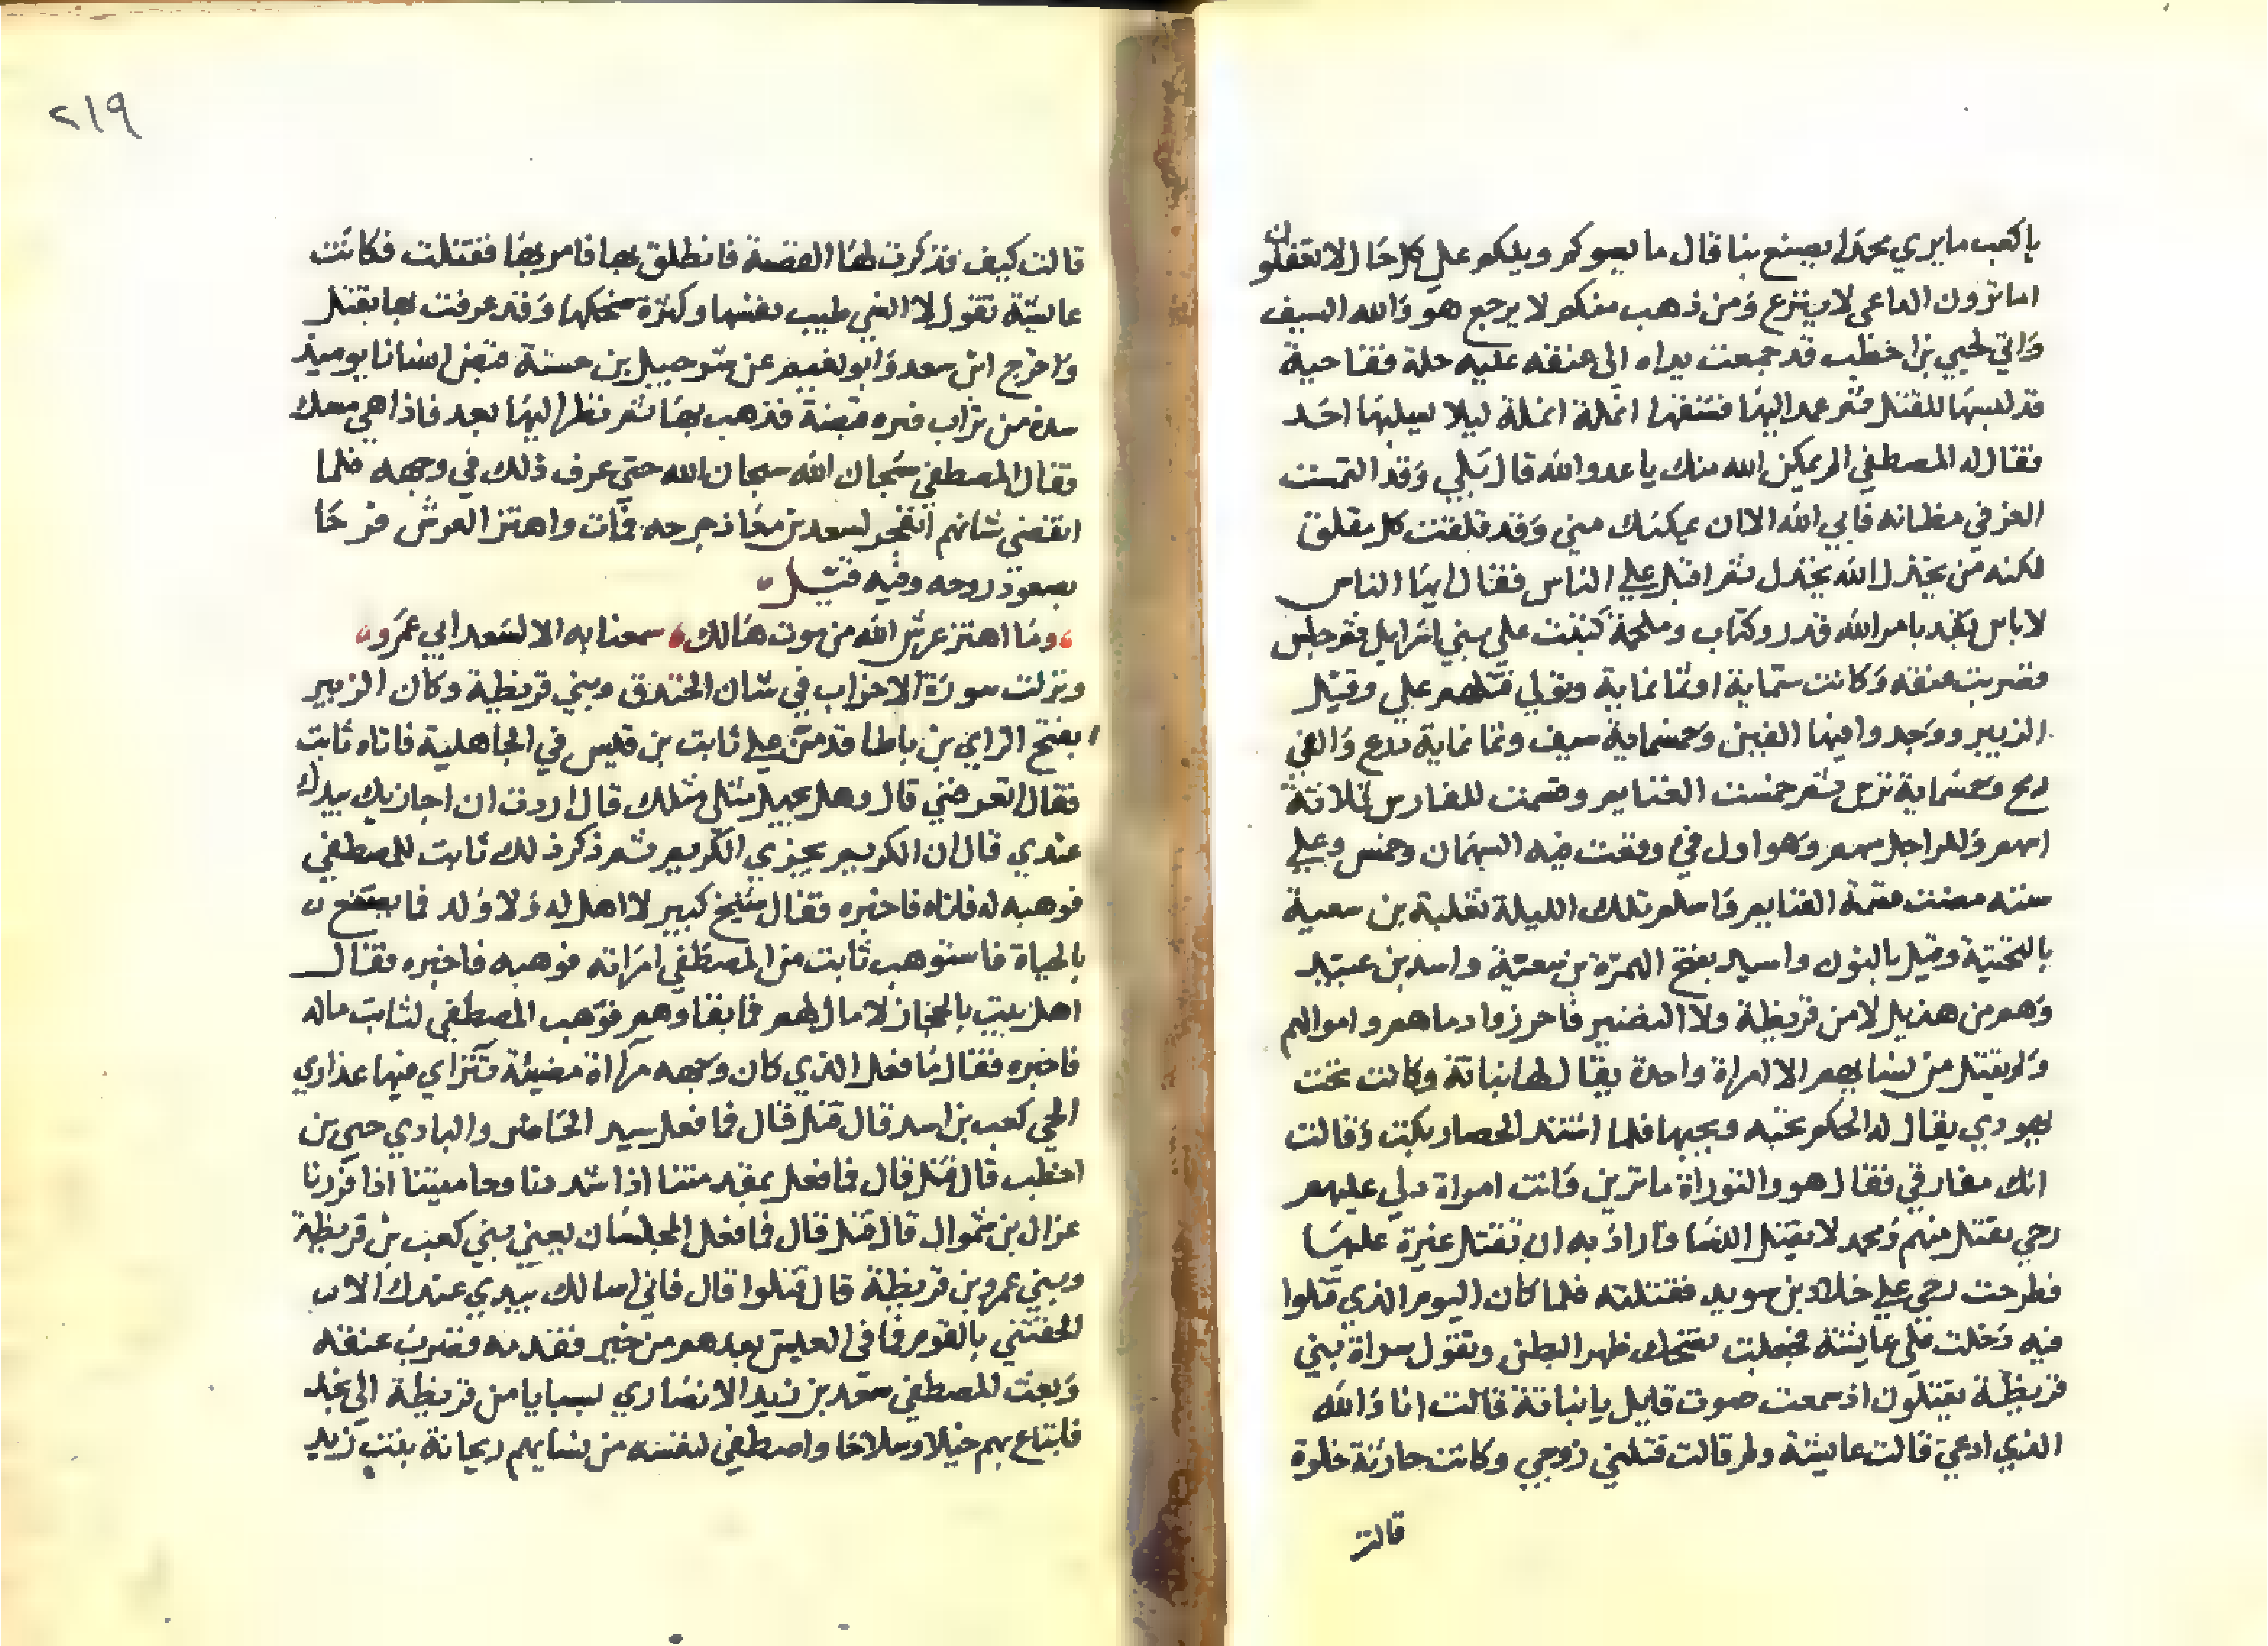 يا كعب ما يري محمدا يصنع بنا قال ما يسوكم ويلكم علي كل حال لا تعقلون
اما ترون الداعي لا ينزع ومن ذهب منكم لا يرجع هو والله السيف
واتي لحيي بن اخطب قد جمعت يداه الي عنقه عليه حلة فقاحية
قد لبسها للقتل ثم عمد اليها فشقها انملة انملة ليلا يسلبها احد
فقال له المصطفي الم يمكن الله منك يا عدو الله قال بلي وقد التمست
العز في مظانه فابي الله الا ان يمكنك مني وقد قلقت كل مقلق
لكنه من يخذل الله يخذل ثم اقبل علي الناس فقال ايها الناس
لا باس بامر الله قدر وكتاب وملحمة كتبت علي بني اسرايل ثم جلس
فضربت عنقه وكانت ستماية او ثمانماية وتولي قتلهم علي وقيل
الزبير ووجدوا فيها الفين وخمسماية سيف وثمانماية درع والفي
رمح وخمسماية ترس ثم خمست الغنايم وقسمت للفارس ثلاثة
اسهم وللراجل سهم وهو اول في وقعت فيه السهمان وخمس وعلي
سنته مضت قسمة الغنايم واسلم تلك الليلة ثعلبة بن سعية
بالتحتية وقيل بالنون واسيد بفتح الهمزة بن سعية واسد بن عبيد
وهم من هذيل لا من قريظة ولا النضير فاحرزوا دماهم واموالهم
ولم يقتل من نسايهم الا امراة واحدة يقال لها نباتة وكانت تحت
يهودي يقال له الحكم تحبه ويحبها فلما اشتد الحصار بكت وقالت
انك مفارقي فقال هو والتوراة ما ترين وانت امراة دلي عليهم
رحي نقتل منهم ومحمد لا يقتل النسا واراد به ان تقتل غيرة عليها
فطرحت رحي علي خلاد بن سويد فقتلته فلما كان اليوم الذي قتلوا
فيه دخلت علي عايشة فجعلت تضحك ظهر البطن وتقول سراة بني
قريظة يقتلون اذ سمعت صوت قايل يا نباتة قالت انا والله
الذي ادعي قالت عايشة ولم قالت قتلني زوجي وكانت جارية حلوة
قالت
٢١٩
قالت كيف فذكرت لها القصة فانطلق بها فامر بها فقتلت فكانت
عايشة تقول لا انسي طيب نفسها وكثرة ضحكها وقد عرفت بها بقتل
واخرج ابن سعد وابو نعيم عن شرحبيل بن حسنة قبض انسانا يوميذ
بيده من تراب قبره قبضة فذهب بها ثم نظر اليها بعد فاذا هي مسك
فقال المصطفي سبحان الله سبحان الله حتي عرف ذلك في وجهه فلما
انقضي شانهم انفجر لسعد بن معاذ جرحه فمات واهتز العرش فرحا
بصعود روحه وفيه قيل
وما اهتز عرش الله من موت هالك سمعنا به الا لسعد ابي عمرو
ونزلت سورة الاحزاب في شان الخندق وبني قريظة وكان الزبير
بفتح الزاي بن باطا قد من علي ثابت بن قيس في الجاهلية فاتاه ثابت
فقال اتعرفني قال وهل يجهل مثلي مثلك قال اردت ان اجازيك بيدك
عندي قال ان الكريم يجزي الكريم ثم ذكر ذلك ثابت للمصطفي
فوهبه له فاتاه فاخبره فقال شيخ كبير لا اهل له ولا ولد فما يصنع
بالحياة فاستوهب ثابت من المصطفي امراته فوهبه فاخبره فقال
اهل بيت بالحجاز لا مال لهم فما بقاوهم فوهب المصطفي لثابت ماله
فاخبره فقال ما فعل الذي كان وجهه مراة مضيئة تتراي فيها عذاري
الحي كعب بن اسد قال قتل قال فما فعل سيد الحاضر والبادي حيي بن
اخطب قال قتل قال فما فعل بمقدمتنا اذا شددنا وحاميتنا اذا فررنا
عزال بن شموال قال قتل قال فما فعل المجلسان يعني بني كعب بن قريظة
وبني عمرو بن قريظة قال قتلوا قال فاني اسالك بيدي عندك الا
الحقتني بالقوم فما في العيش بعدهم من خير فقدمه فضرب عنقه
وبعث المصطفي سعد بن زيد الانصاري بسبايا من قريظة الي نجد
فابتاع بهم خيلا وسلاحا واصطفي لنفسه من نسايهم ريحانة بنت زيد